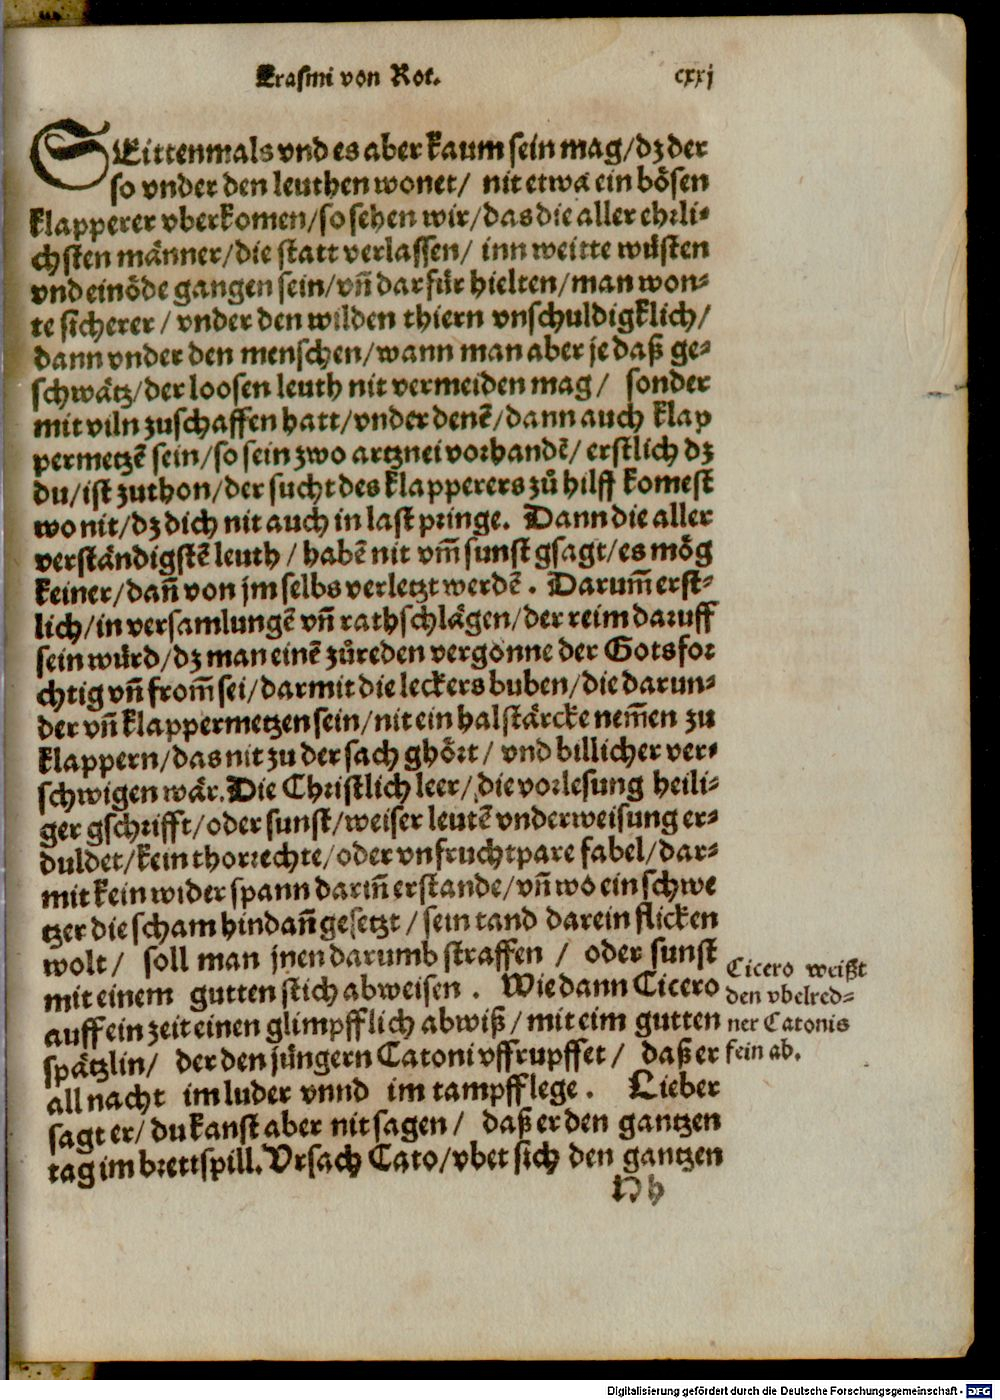 Erasmi von Rot.
cxxj
SEittenmals vnd es aber kaum sein mag/dz der
so vnder den leuthen wonet/ nit etwa ein bösen
klapperer vberkomen/so sehen wir/das die aller ehrli-
chsten männer/die statt verlassen/ inn weitte wüsten
vnd einöde gangen sein/vñ darfür hielten/man won-
te sicherer/ vnder den wilden thiern vnschuldigklich/
dann vnder den menschen/wann man aber je daß ge-
schwätz/der loosen leuth nit vermeiden mag/ sonder
mit viln zuschaffen hatt/vnder denẽ/dann auch klap
permetzẽ sein/so sein zwo artznei vorhandẽ/ erstlich dz
du/ist zuthon/der sucht des klapperers zů hilff komest
wo nit/dz dich nit auch in last pringe. Dann die aller
verständigstẽ leuth/ habẽ nit vm̃ sunst gsagt/es mög
keiner/dañ von jm selbs verletzt werdẽ. Darum̃ erst-
lich/in versamlungẽ vñ rathschlägen/der reim daruff
sein würd/dz man einẽ zůreden vergönne der Gotsfor
chtig vñ from̃ sei/darmit die leckers buben/die darun-
der vñ klappermetzen sein/nit ein halstärcke nem̃en zu
klappern/das nit zu der sach ghört/ vnd billicher ver-
schwigen wär. Die Christlich leer/ die vorlesung heili-
ger gschrifft/oder sunst/weiser leutẽ vnderweisung er-
duldet/kein thorrechte/oder vnfruchtpare fabel/dar-
mit kein widerspann darin̄ erstande/vñ wo ein schwe
tzer die scham hindañ gesetzt/ sein tand darein flicken
wolt/ soll man jnen darumb straffen / oder sunst
mit einem gutten stich abweisen. Wie dann Cicero
auff ein zeit einen glimpfflich abwiß/mit eim gutten
spätzlin/ der den jüngern Catoni vffrupffet/ daß er
all nacht im luder vnnd im tampff lege. Lieber
sagt er/du kanst aber nit sagen/ daß er den gantzen
tag im brettspill. Vrsach Cato/vbet sich den gantzen
Cicero weißt
den vbelred-
ner Catonis
fein ab.
Hh
Digitalisierung gefördert durch die Deutsche Forschungsgemeinschaft - DFG